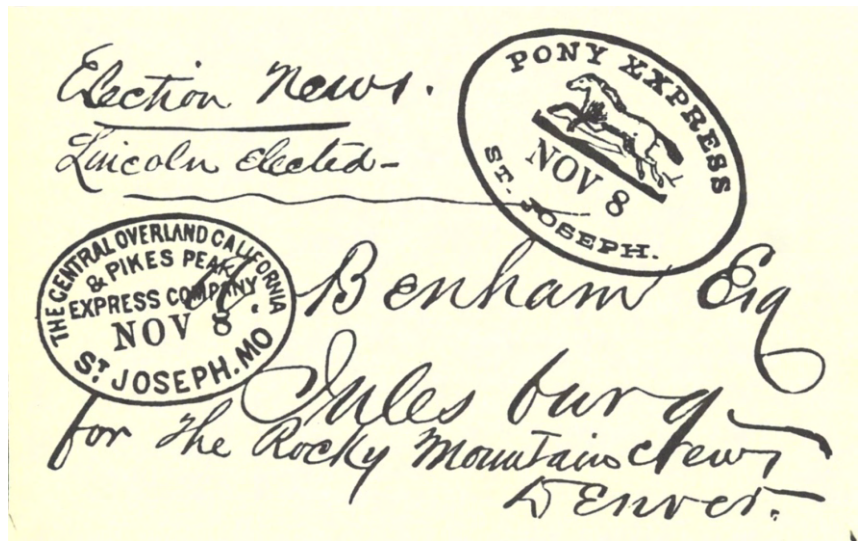 Election News.
Lincoln elected-
PONY EXPRESS
NOV 8
ST. JOSEPH.
THE CENTRAL OVERLAND CALIFORNIA
& PIKES PEAK
EXPRESS COMPANY
NOV 8
ST JOSEPH. MO
A. Benham Esq
Julesburg
for the Rocky Mountain News
Denver.